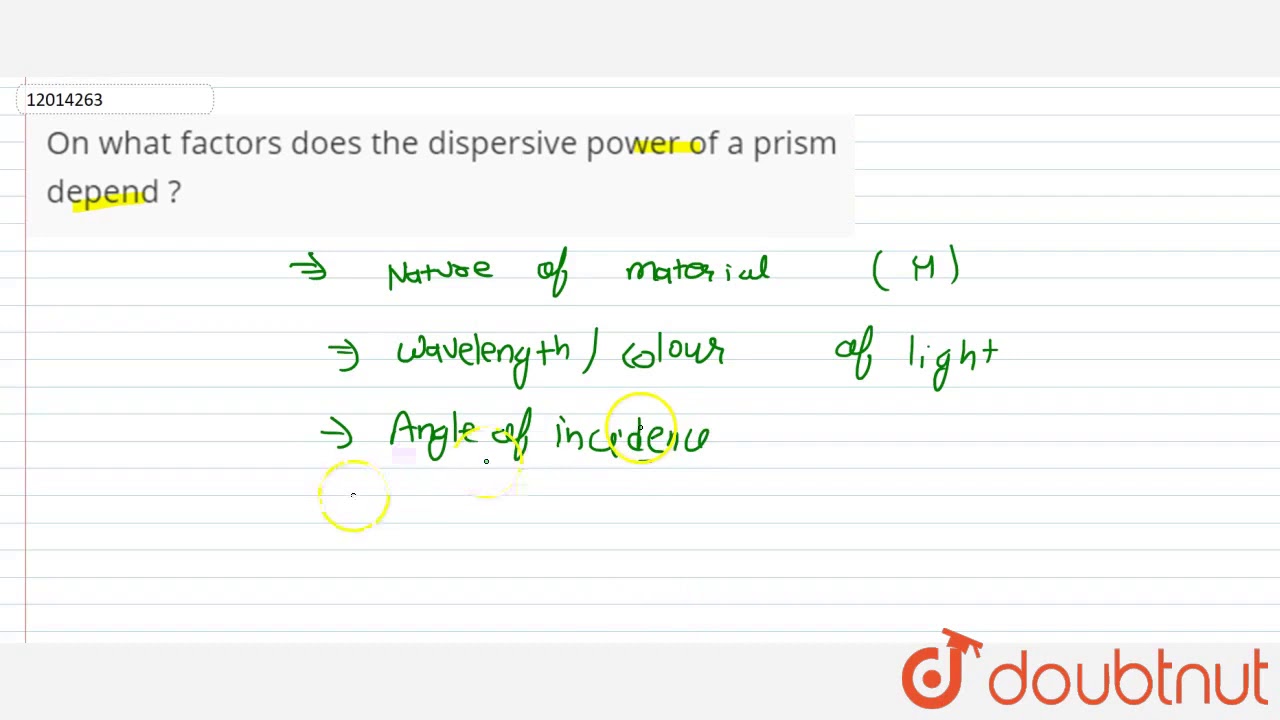 12014263
On what factors does the dispersive power of a prism
depend ?
⇒ Nature of material (μ)
⇒ wavelength/colour of light
→ Angle of incidence
doubtnut